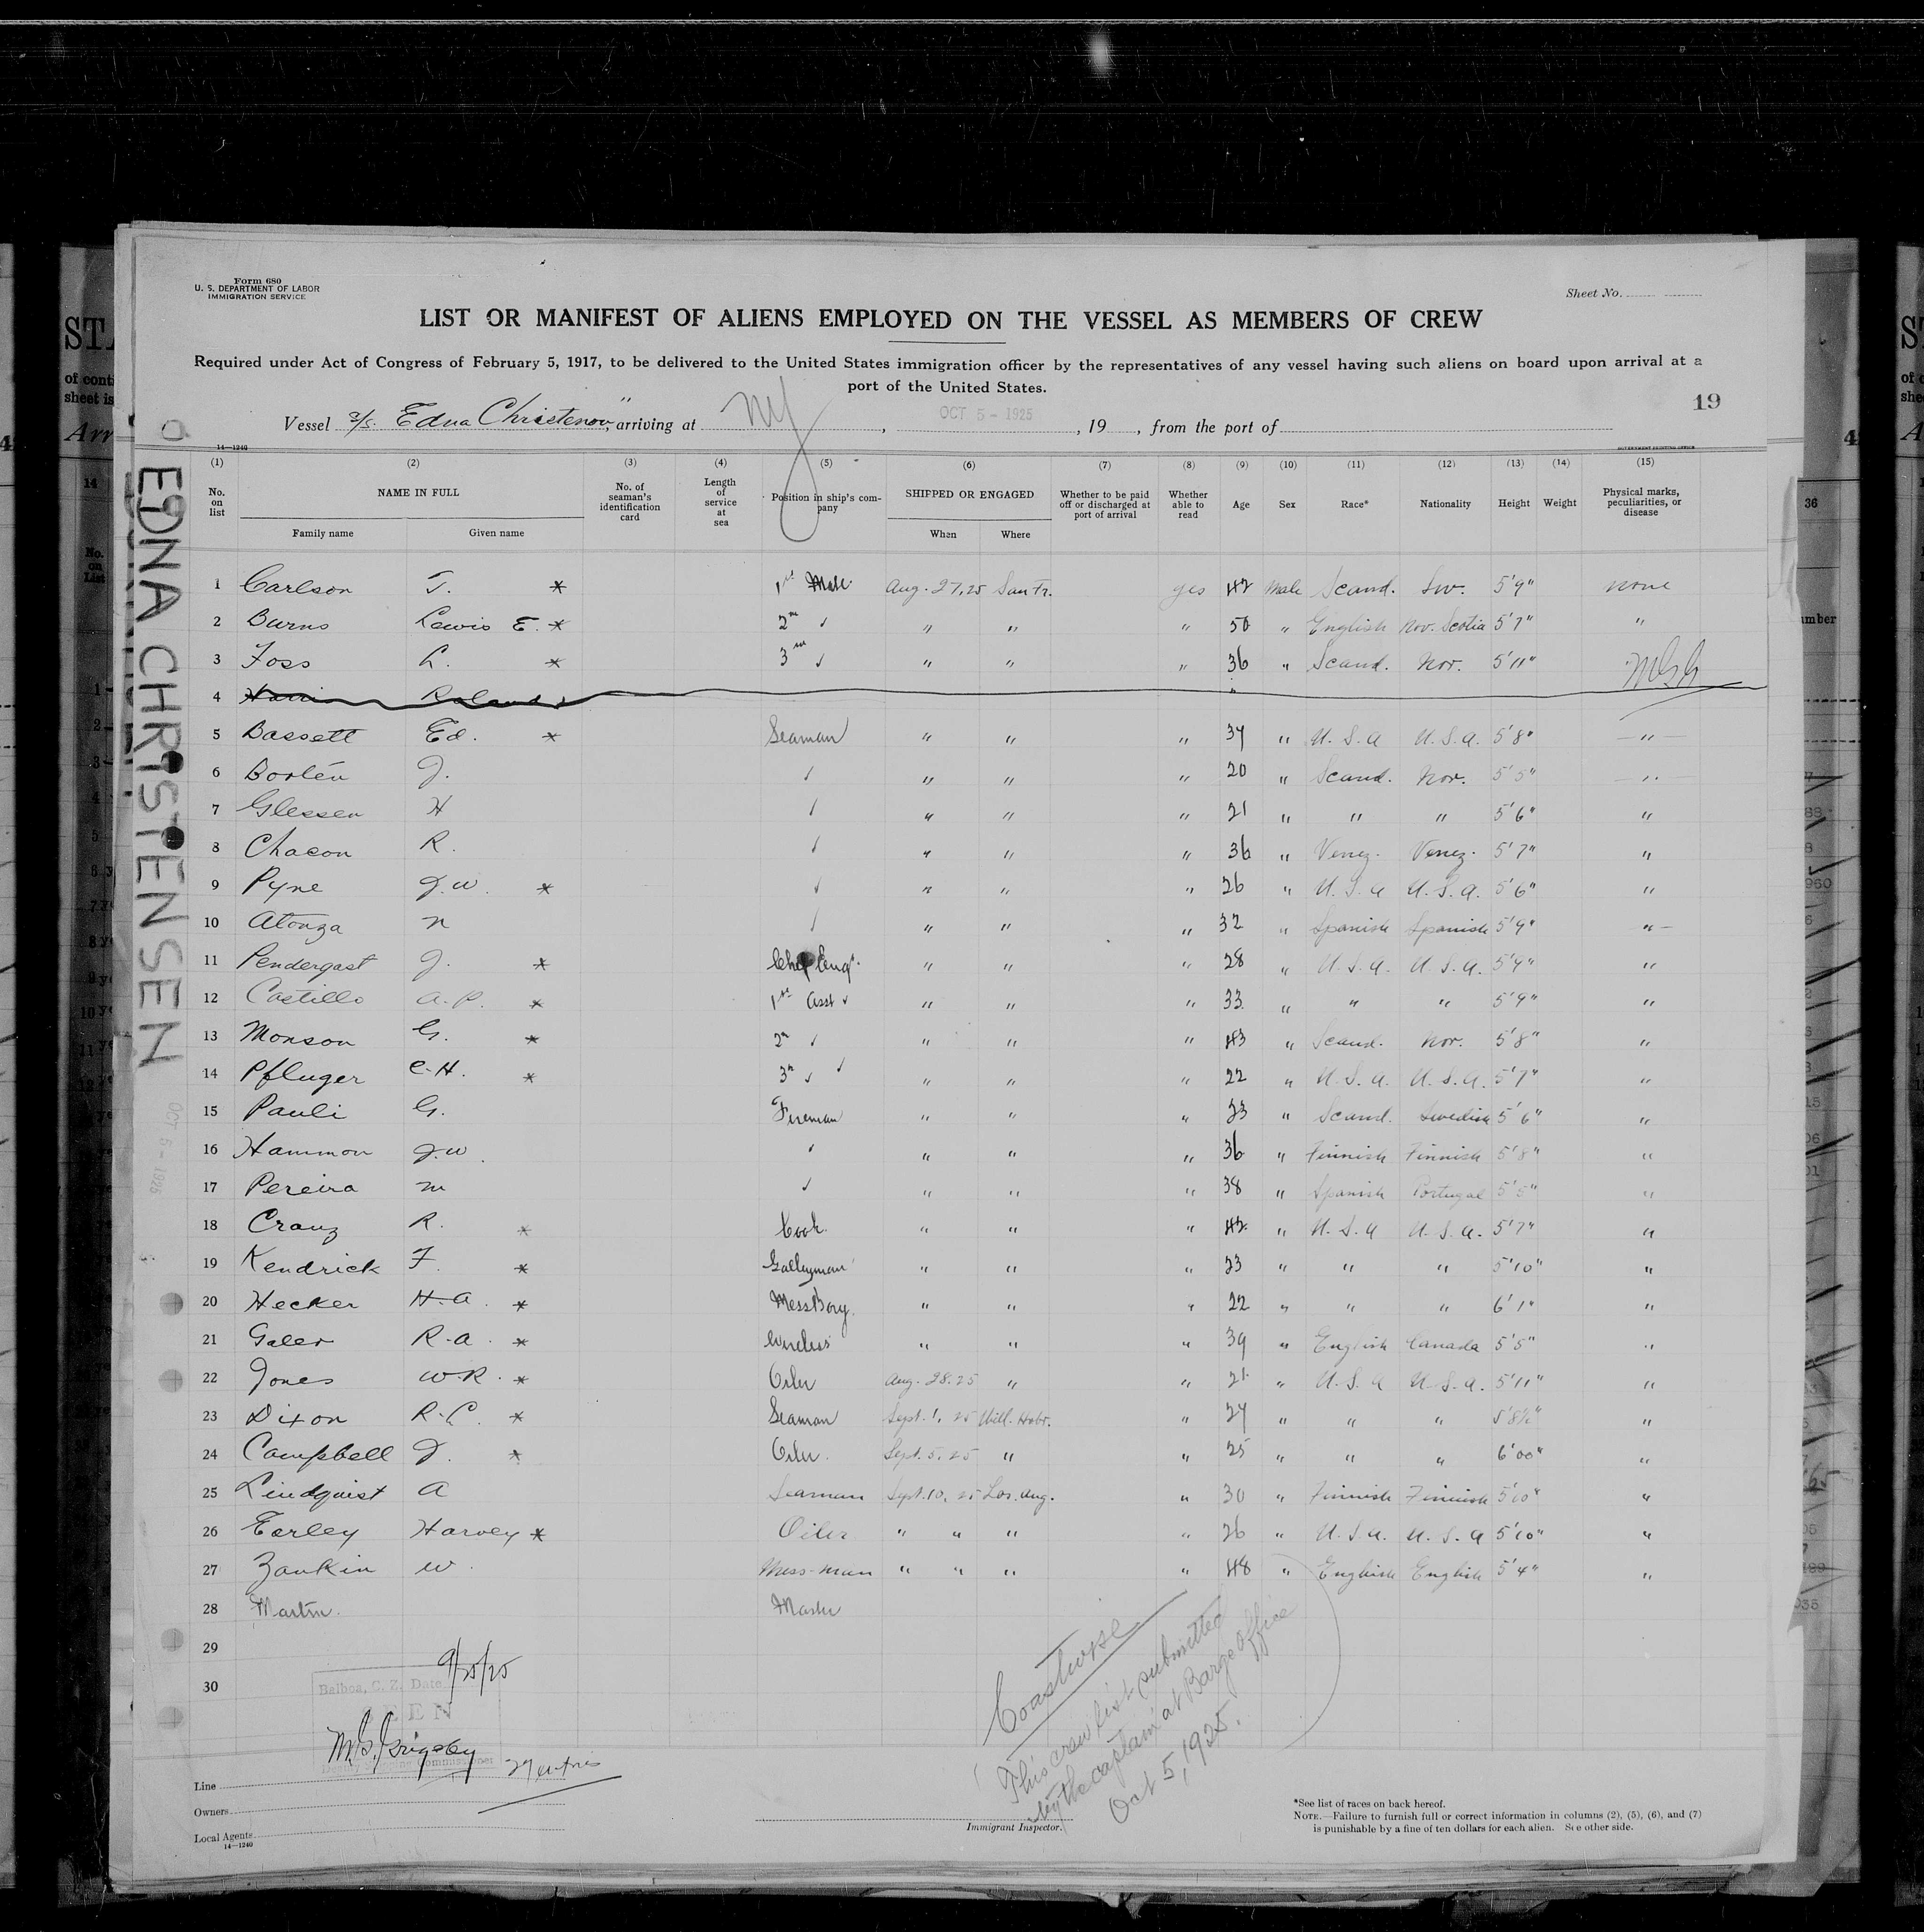 Form 680
U. S. DEPARTMENT OF LABOR
IMMIGRATION SERVICE
Sheet No.
LIST OR MANIFEST OF ALIENS EMPLOYED ON THE VESSEL AS MEMBERS OF CREW
Required under Act of Congress of February 5, 1917, to be delivered to the United States immigration officer by the representatives of any vessel having such aliens on board upon arrival at a
port of the United States.
19
Vessel "Edna Christenson", arriving at NY, OCT 5 - 1925, 19 , from the port of
14—1240 GOVERNMENT PRINTING OFFICE
(1) (2) (3) (4) (5) (6) (7) (8) (9) (10) (11) (12) (13) (14) (15)
No. on list NAME IN FULL Family name Given name No. of seaman's identification card Length of service at sea Position in ship's company SHIPPED OR ENGAGED When Where Whether to be paid off or discharged at port of arrival Whether able to read Age Sex Race* Nationality Height Weight Physical marks, peculiarities, or disease
EDNA CHRISTENSEN
OCT 5 - 1925
1 Carlson T. * 1st Mate Aug. 27, 25 San Fr. yes 42 Male Scand. Sw. 5'9" none
2 Burns Lewis E. * 2nd ✓ " " " 50 " English Nov. Scotia 5'7" "
3 Foss L. * 3rd ✓ " " " 36 " Scand. Nor. 5'11"
4 Roland
5 Bassett Ed. * Seaman " " " 34 " U.S.A U.S.A. 5'8" "
6 Borlén J. ✓ " " " 20 " Scand. Nor. 5'5" "
7 Glessen H ✓ " " " 21 " " " 5'6" "
8 Chacon R. ✓ " " " 36 " Venez. Venez. 5'7" "
9 Pyne J.W. * ✓ " " " 26 " U.S.A U.S.A. 5'6" "
10 Atonza N ✓ " " " 32 " Spanish Spanish 5'9" "
11 Pendergast J. * Chief Engr. " " " 28 " U.S.A. U.S.A. 5'9" "
12 Castillo A.P. * 1st Asst ✓ " " " 33 " " " 5'9" "
13 Monson G. * 2n ✓ " " " 43 " Scand. Nor. 5'8" "
14 Pfluger C.H. * 3rd ✓ ✓ " " " 22 " U.S.A. U.S.A. 5'7" "
15 Pauli G. Fireman " " " 23 " Scand. Swedish 5'6" "
16 Hammon J.W. ✓ " " " 36 " Finnish Finnish 5'8" "
17 Pereira M ✓ " " " 38 " Spanish Portugal 5'5" "
18 Cranz R. * Cook " " " 42 " U.S.A U.S.A. 5'7" "
19 Kendrick F. * Galleyman " " " 23 " " " 5'10" "
20 Hecker H.A. * Mess Boy " " " 22 " " " 6'1" "
21 Galer R.A. * Wireless " " " 39 " English Canada 5'5" "
22 Jones W.R. * Oiler Aug. 28. 25 " " 21 " U.S.A U.S.A. 5'11" "
23 Dixon R.C. * Seaman Sept. 1, 25 Will. Hobr. " 24 " " " 5'8½" "
24 Campbell J. * Oiler. Sept. 5, 25 " " 25 " " " 6'00" "
25 Lindquist A Seaman Sept. 10, 25 Los. Ang. " 30 " Finnish Finnish 5'10" "
26 Earley Harvey * Oiler " " " " 26 " U.S.A. U.S.A 5'10" "
27 Zankin W. Mess-man " " " " 48 " English English 5'4" "
28 Martin. Master
29
30
9/25/25
Balboa, C. Z. Date
SEEN
M.G. Grigsby
27 entries
Coastwise
This crew list submitted
by the captain at Barge Office
Oct 5, 1925.
Line
Owners
Local Agents
14—1240
Immigrant Inspector.
*See list of races on back hereof.
NOTE.—Failure to furnish full or correct information in columns (2), (5), (6), and (7)
is punishable by a fine of ten dollars for each alien. See other side.